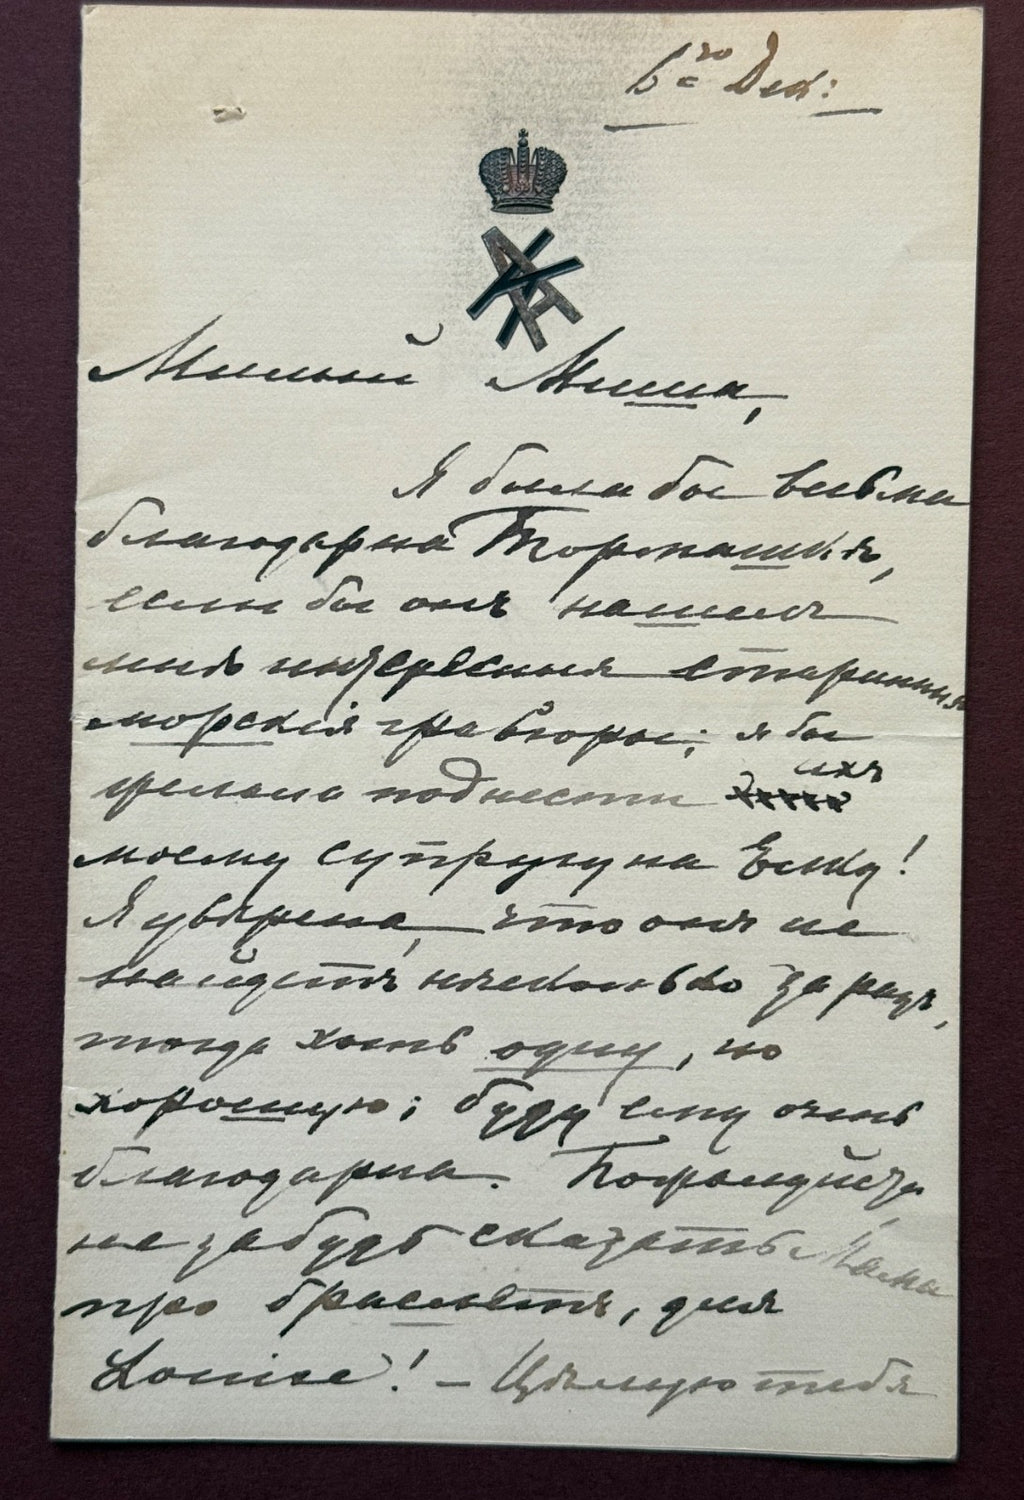 6го Дек:
Милый Миша,
Я была бы весьма
благодарна Тормашкѣ,
если бы онъ нашелъ
мнѣ интересныя старинныя
морскія гравюры; я бы
желала поднести ихъ
моему супругу на Ёлку!
Я увѣрена, что онъ не
найдетъ нѣсколько за разъ,
тогда хоть одну, но
хорошую; буду ему очень
благодарна. Пожалуйста,
не забудь сказать Мама
про браслетъ, для
Louise! — Цѣлую тебя